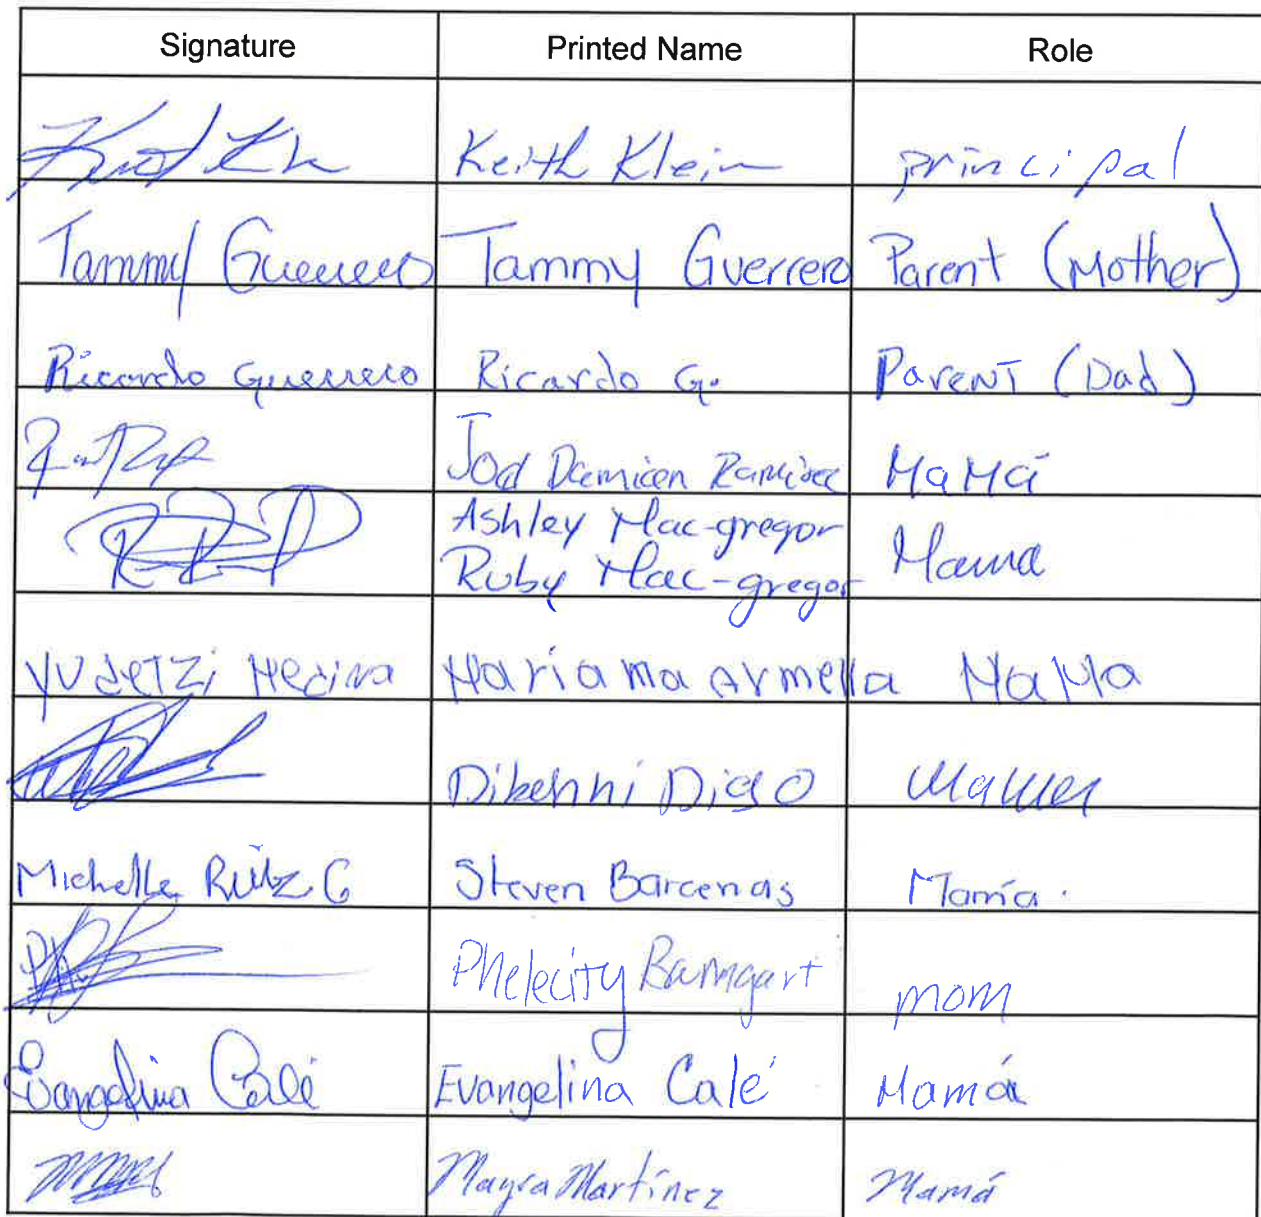 Signature Printed Name Role
Keith Klein principal
Tammy Guerrero Tammy Guerrero Parent (Mother)
Ricardo Guerrero Ricardo G. Parent (Dad)
Damien Ramirez MaMá
Ashley Mac-gregor
Ruby Mac-gregor Mama
Yudetzi Medina Mariama Armella MaMa
Dikehhi
Michelle Ruiz C Steven Barcenas Mamá.
Phelecity Bamgart mom
Evangelina Calé Evangelina Calé Mamá
Mayra Martínez Mamá